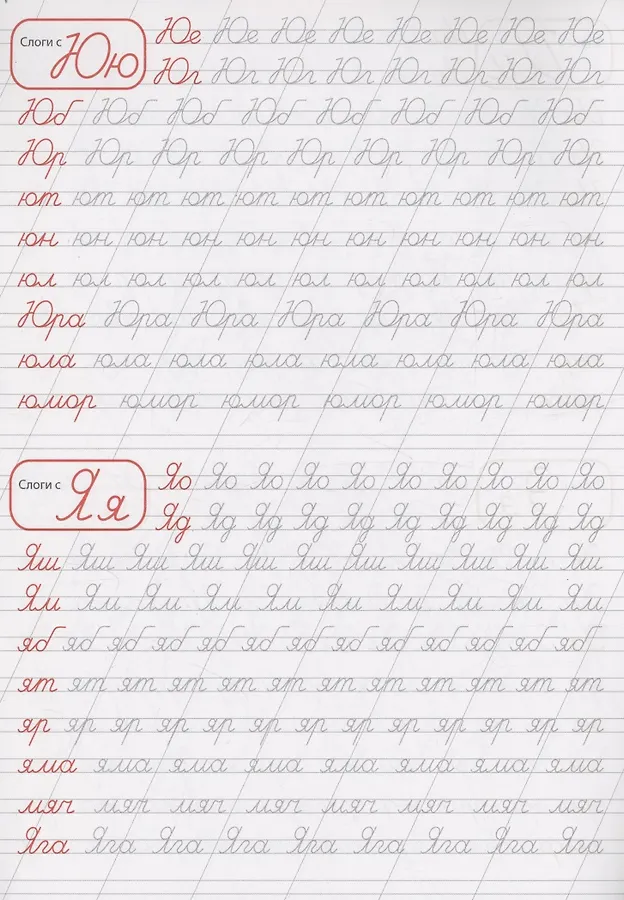 Слоги с Юю Юе Юе Юе Юе Юе Юе Юе Юе
Юг Юг Юг Юг Юг Юг Юг Юг
Юб Юб Юб Юб Юб Юб Юб Юб
Юр Юр Юр Юр Юр Юр Юр Юр Юр
ют ют ют ют ют ют ют ют ют ют ют
юн юн юн юн юн юн юн юн юн юн юн
юл юл юл юл юл юл юл юл юл юл юл
Юра Юра Юра Юра Юра Юра Юра
юла юла юла юла юла юла юла юла
юмор юмор юмор юмор юмор юмор
Слоги с Яя Яо Яо Яо Яо Яо Яо Яо Яо Яо Яо
Яд Яд Яд Яд Яд Яд Яд Яд Яд Яд
Яш Яш Яш Яш Яш Яш Яш Яш Яш Яш Яш
Ям Ям Ям Ям Ям Ям Ям Ям Ям Ям
яб яб яб яб яб яб яб яб яб яб яб яб яб
ят ят ят ят ят ят ят ят ят ят ят ят
яр яр яр яр яр яр яр яр яр яр яр яр яр
яма яма яма яма яма яма яма яма
мяч мяч мяч мяч мяч мяч мяч мяч
Яга Яга Яга Яга Яга Яга Яга Яга Яга